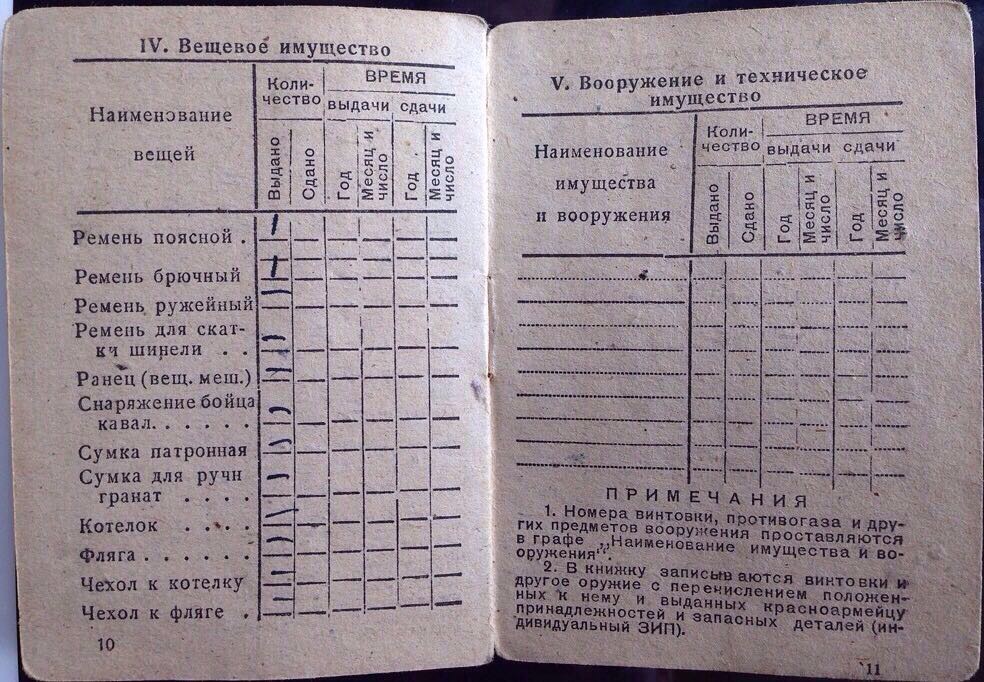 IV. Вещевое имущество
Наименование
вещей
Коли-
чество
ВРЕМЯ
выдачи
сдачи
Выдано
Сдано
Год
Месяц и
число
Год
Месяц и
число
Ремень поясной .
Ремень брючный
Ремень ружейный
Ремень для скат-
ки шинели . .
Ранец (вещ. меш.)
Снаряжение бойца
кавал. . . . . .
Сумка патронная
Сумка для ручн
гранат . . . .
Котелок . . . .
Фляга . . . . . .
Чехол к котелку
Чехол к фляге .
10
V. Вооружение и техническое
имущество
Наименование
имущества
и вооружения
Коли-
чество
ВРЕМЯ
выдачи
сдачи
Выдано
Сдано
Год
Месяц и
число
Год
Месяц и
число
ПРИМЕЧАНИЯ
1. Номера винтовки, противогаза и дру-
гих предметов вооружения проставляются
в графе „Наименование имущества и во-
оружения".
2. В книжку записываются винтовки и
другое оружие с перечислением положен-
ных к нему и выданных красноармейцу
принадлежностей и запасных деталей (ин-
дивидуальный ЗИП).
11